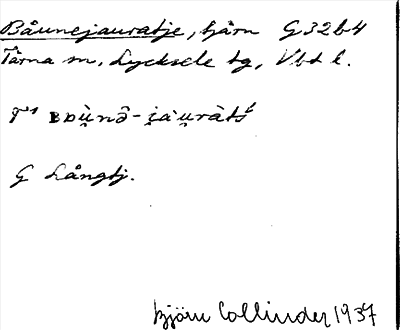 Båunejauratje, tjärn G32b4
Tärna sn, Lycksele lg, Vbd l.
ʙᴅu̯̇̀nə̑-i̯a͕u̯ràtś
G Långtj.
Björn Collinder 1937